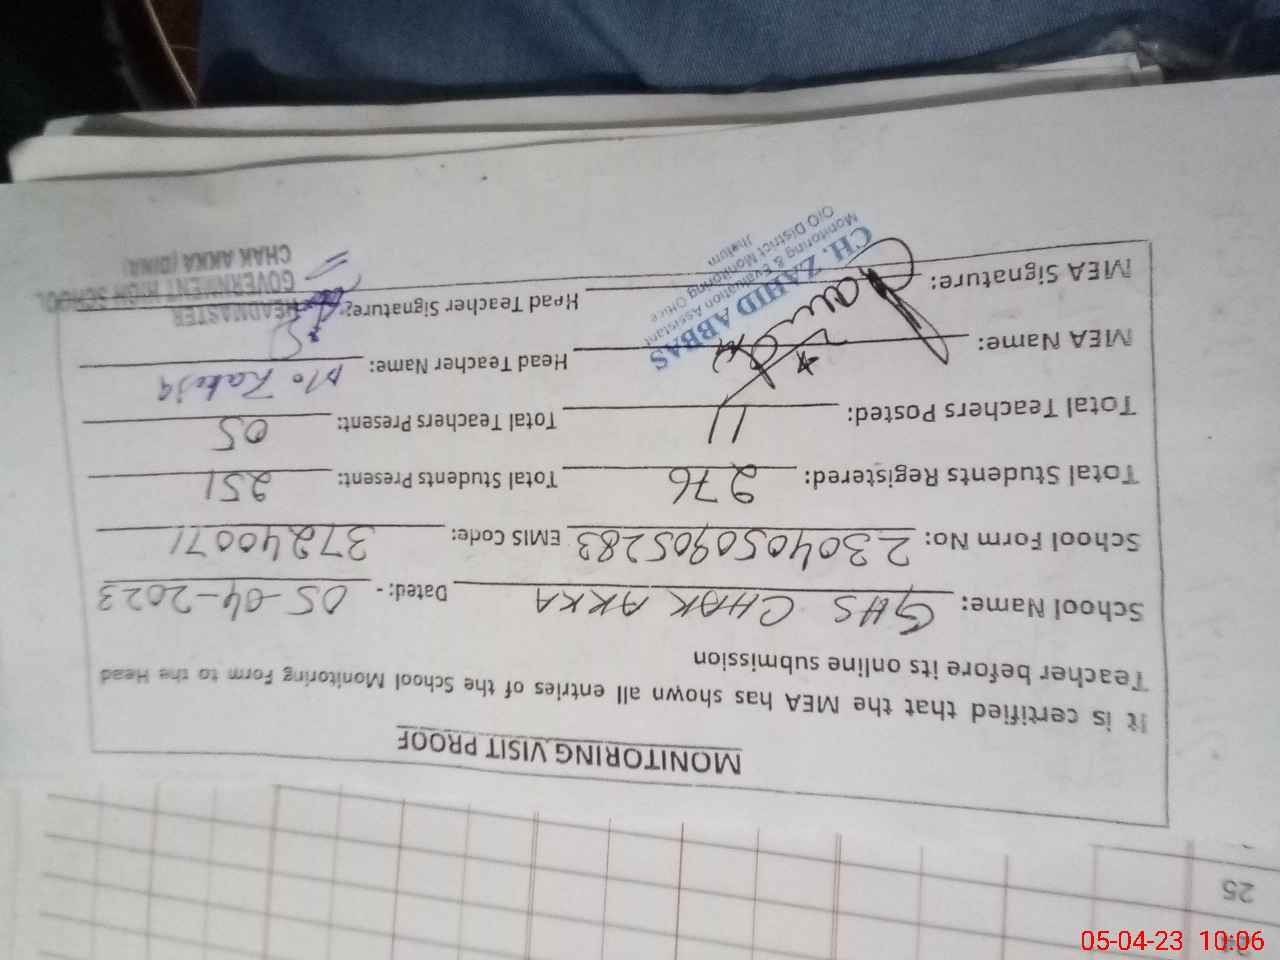 MONITORING VISIT PROOF
It is certified that the MEA has shown all entries of the School Monitoring Form to the Head
Teacher before its online submission
School Name: GHS CHAK AKKA Dated:- 05-04-2023
School Form No: 2304050905283 EMIS Code: 37240071
Total Students Registered: 276 Total Students Present: 251
Total Teachers Posted: 11 Total Teachers Present: 05
MEA Name: Head Teacher Name:
MEA Signature: Head Teacher Signature:
CH. ZAHID ABBAS
Monitoring & Evaluation Assistant
O/O District Monitoring Office
Jhelum
HEADMASTER
GOVERNMENT HIGH SCHOOL
CHAK AKKA (DINA)
25
05-04-23 10:06